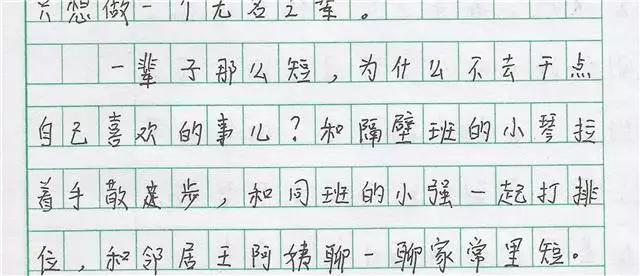 只想做一个无名之辈。
一辈子那么短，为什么不去干点
自己喜欢的事儿？和隔壁班的小琴拉
着手散走步，和同班的小强一起打排
位，和邻居王阿姨聊一聊家常里短。